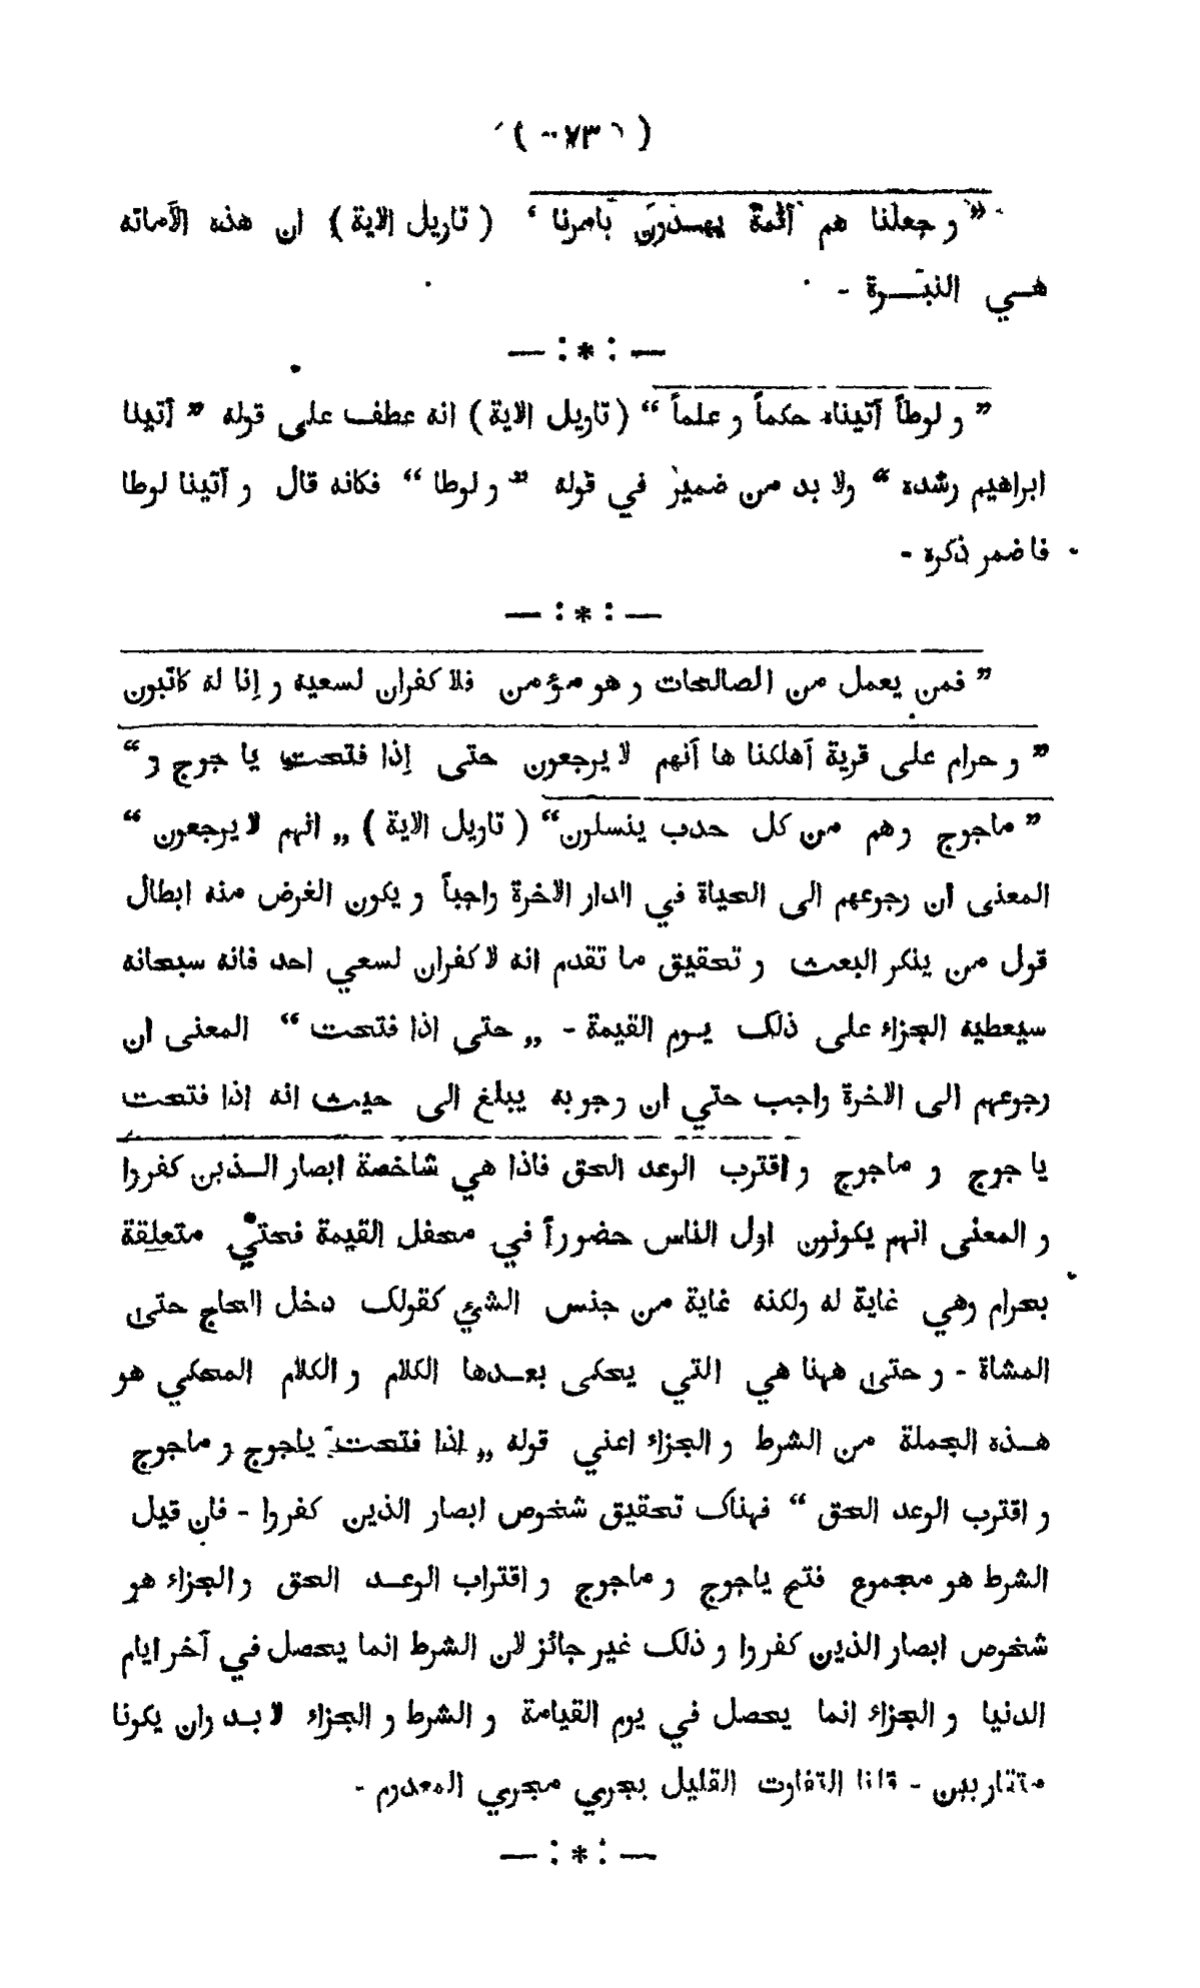 ( ٧٣ )
” و جعلنا هم أئمة يهدون بأمرنا ‘ ( تاويل الاية ) ان هذه الأمانه
هي النبوة -
— : * : —
” و لوطاً آتيناه حكماً و علماً “ ( تاويل الاية ) انه عطف على قوله ” آتينا
ابراهيم رشده “ ولا بد من ضمير في قوله ” و لوطا “ فكانه قال و آتينا لوطا
فاضمر ذكره -
— : * : —
” فمن يعمل من الصالحات و هو مؤمن فلا كفران لسعيه و إنا له كاتبون
” و حرام على قرية أهلكنا ها أنهم لا يرجعون حتى إذا فتحت يا جوج و “
” ماجوج وهم من كل حدب ينسلون“ ( تاويل الاية ) ,, انهم لا يرجعون “
المعنى ان رجوعهم الى الحياة في الدار الاخرة واجباً و يكون الغرض منه ابطال
قول من ينكر البعث و تحقيق ما تقدم انه لا كفران لسعي احد فانه سبحانه
سيعطيه الجزاء على ذلك يوم القيمة - ,, حتى اذا فتحت “ المعنى ان
رجوعهم الى الاخرة واجب حتي ان وجوبه يبلغ الى حيث انه اذا فتحت
يا جوج و ماجوج و اقترب الوعد الحق فاذا هي شاخصة ابصار الذين كفروا
و المعنى انهم يكونون اول الناس حضوراً في محفل القيمة فحتي متعلقة
بحرام وهي غاية له ولكنه غاية من جنس الشئ كقولك دخل الحاج حتى
المشاة - و حتى ههنا هي التي يحكى بعدها الكلام و الكلام المحكي هو
هذه الجملة من الشرط و الجزاء اعني قوله ,, اذا فتحت ياجوج و ماجوج
و اقترب الوعد الحق “ فهناك تحقيق شخوص ابصار الذين كفروا - فان قيل
الشرط هو مجموع فتح ياجوج و ماجوج و اقتراب الوعد الحق و الجزاء هو
شخوص ابصار الذين كفروا و ذلك غير جائز لان الشرط انما يحصل في آخر ايام
الدنيا و الجزاء انما يحصل في يوم القيامة و الشرط و الجزاء لا بد وان يكونا
متقاربين - قلنا التفاوت القليل يجري مجري المعدوم -
— : * : —